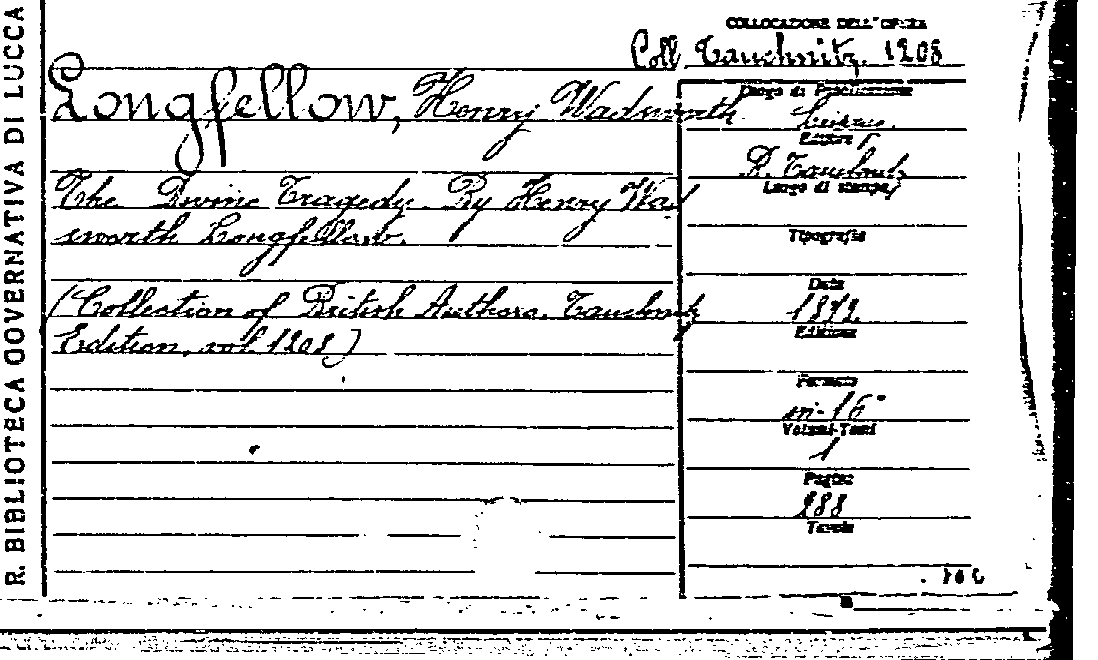 R. BIBLIOTECA GOVERNATIVA DI LUCCA
COLLOCAZIONE DELL'OPERA
Coll. Tauchnitz. 1208
Longfellow, Henry Wadsworth
The Divine Tragedy. By Henry Wad
sworth Longfellow.
(Collection of British Authors. Tauchnitz
Edition, vol. 1208)
Luogo di Pubblicazione
Editore
B. Tauchnitz
Luogo di stampa
Tipografia
Data
1872
Edizione
Formato
in-16°
Volumi-Tomi
1
Pagine
288
Tavole